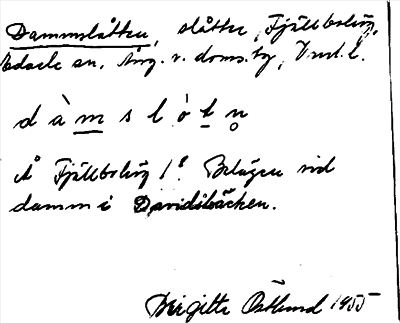 Dammslåtten, slåtter, Fjällboberg,
Edsele sn, Ång. v. doms. by, Vnrl. l.
d à m s l ó t n
Å Fjällboberg 1⁸. Belägen vid
damm i Davidsbäcken.
Birgitta Östlund 1955